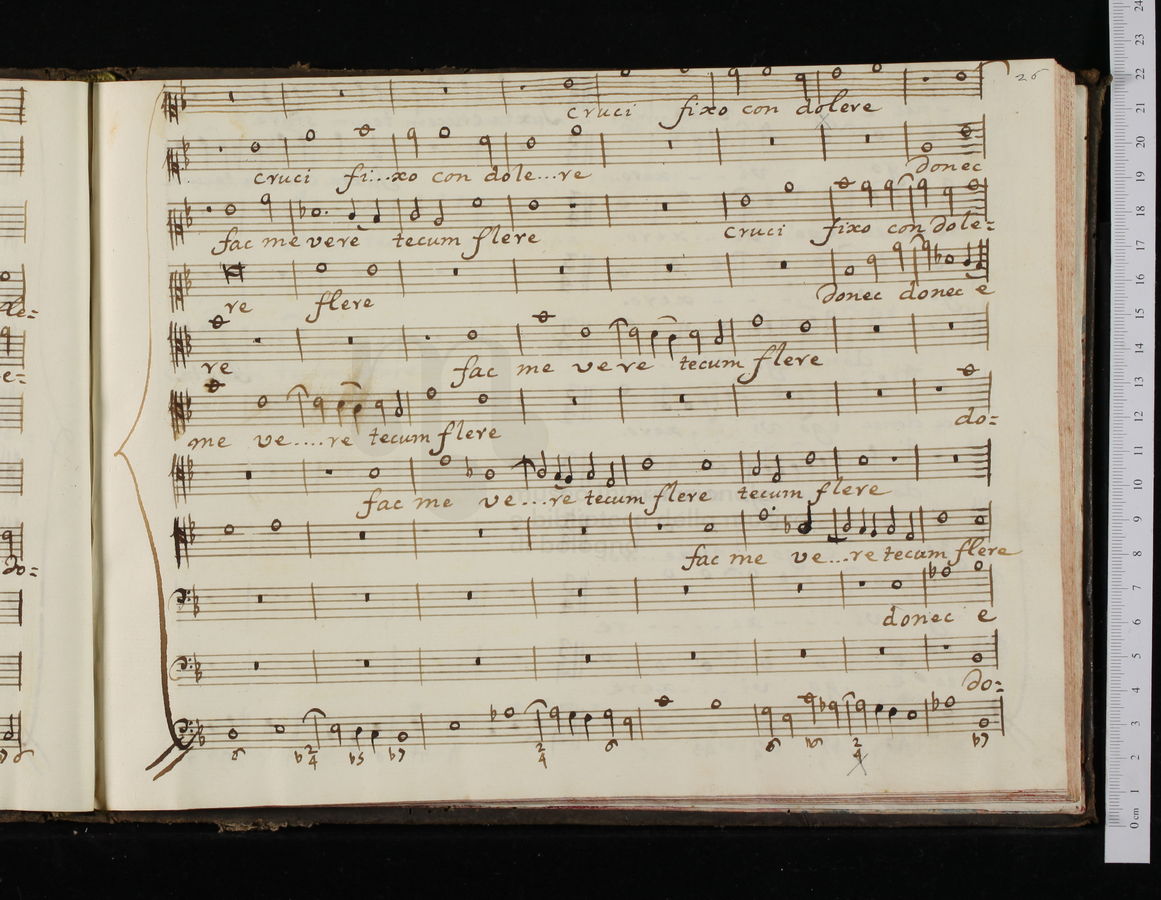 26
cruci fixo con dolere
cruci fi...xo con dole...re donec
fac me vere tecum flere cruci fixo con dole=
re flere donec donec e
re fac me vere tecum flere
me ve....re tecum flere do=
fac me ve...re tecum flere tecum flere
fac me ve...re tecum flere
donec e
do=
6 b 2 4 b5 b7 2 4 6 6 2 4 b7
e=
do=
0 cm 1 2 3 4 5 6 7 8 9 10 11 12 13 14 15 16 17 18 19 20 21 22 23 24